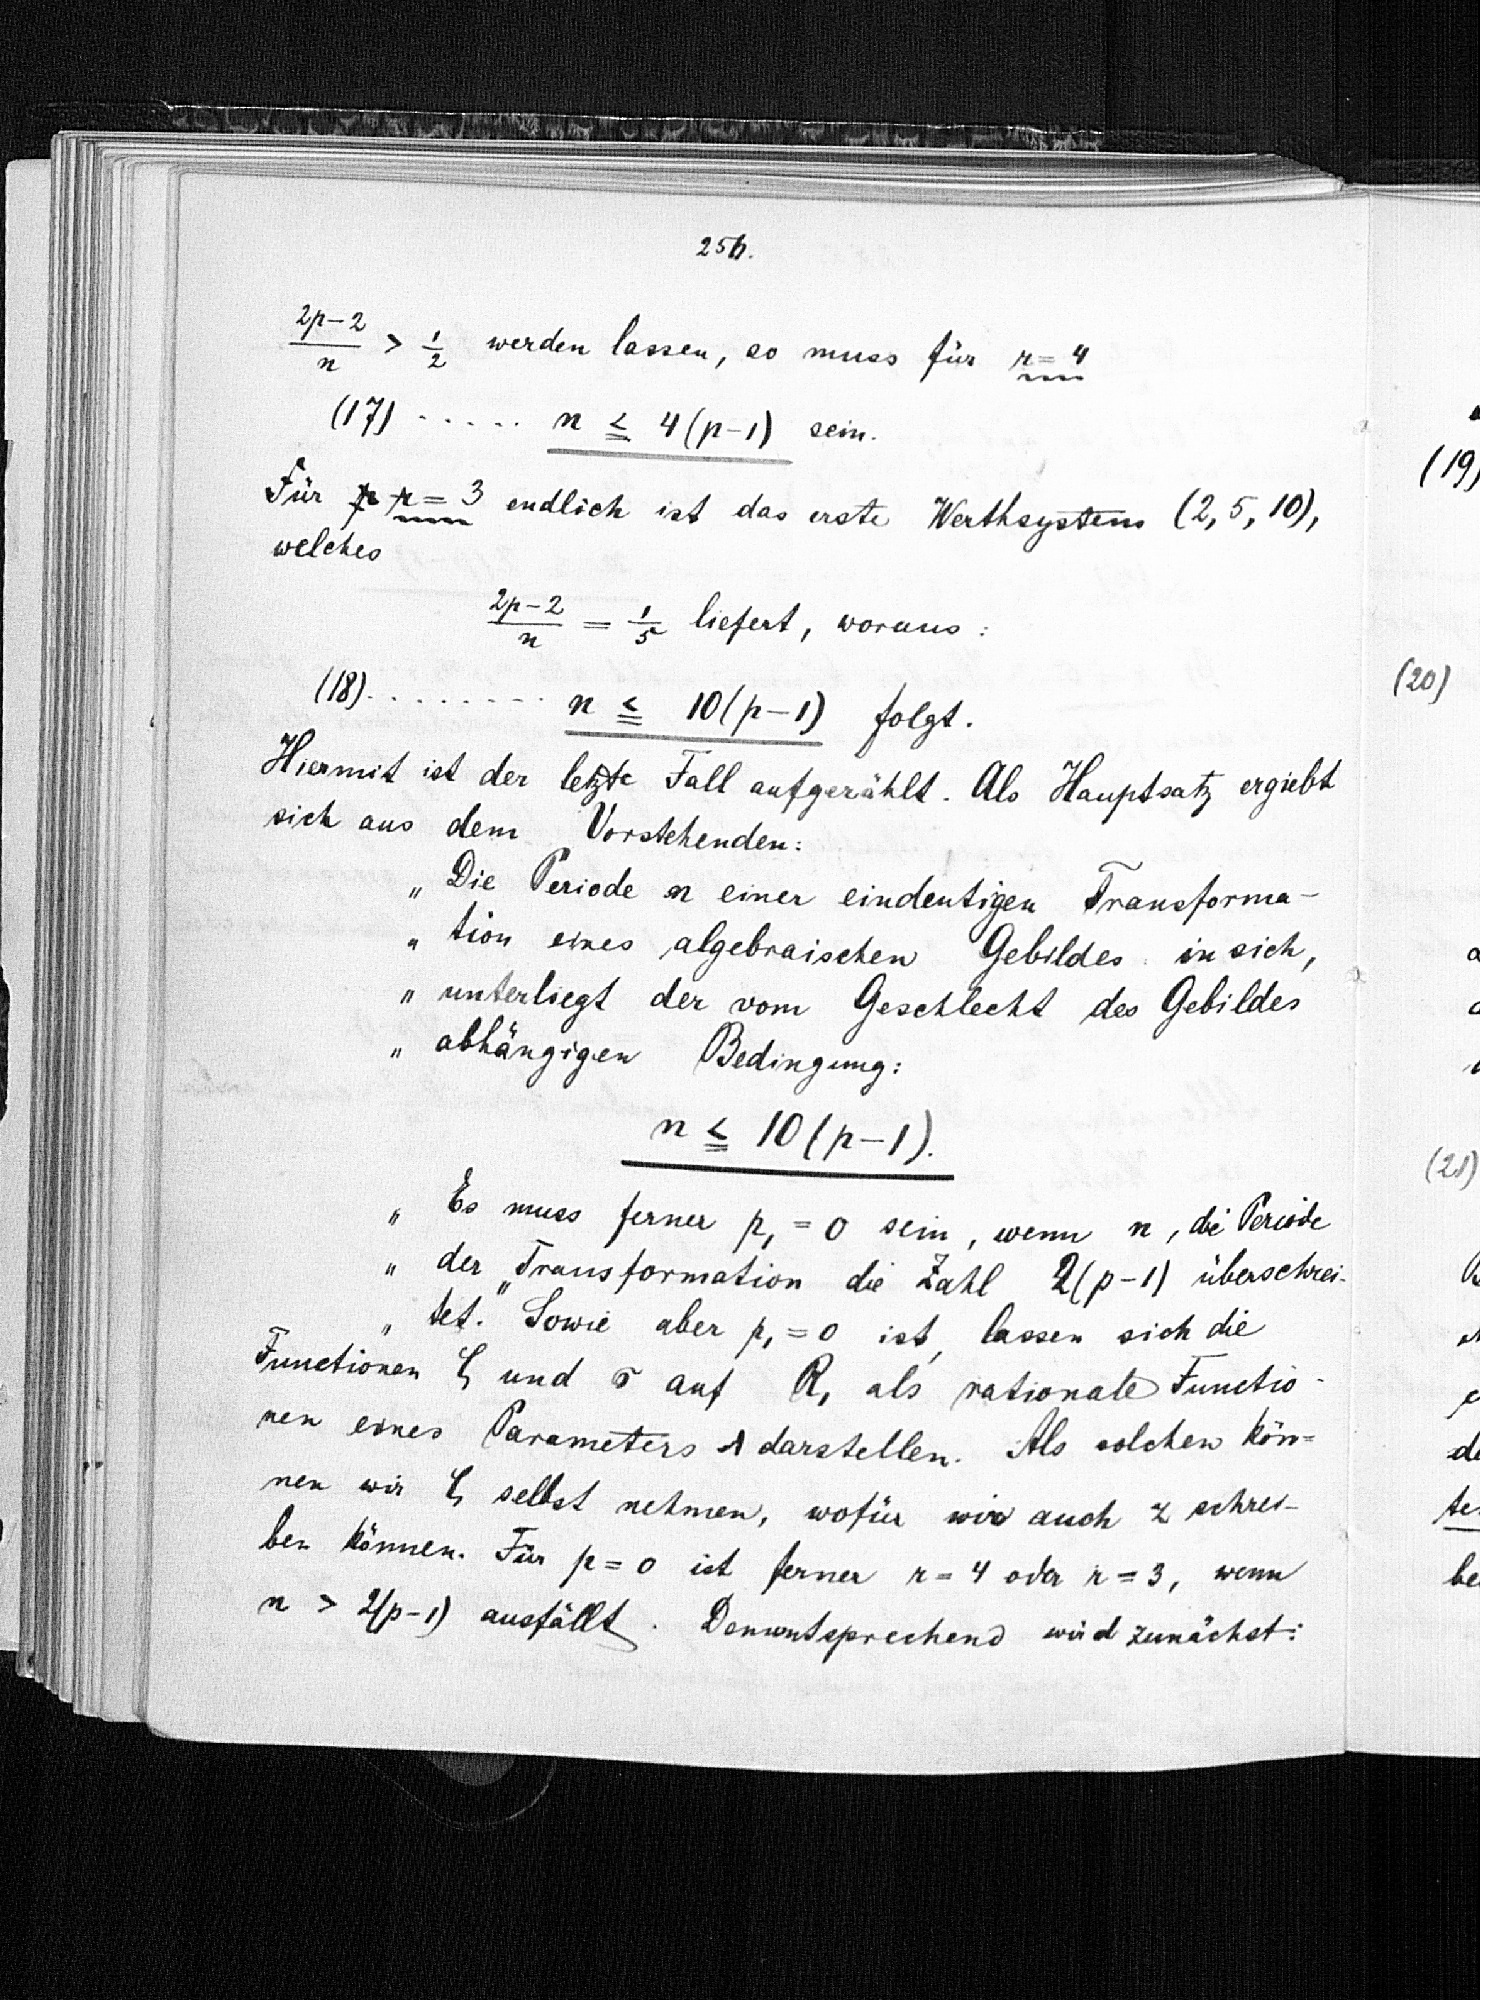 256.
(2p-2)/n > 1/2 werden lassen, so muss für r = 4
(17) ..... n ≦ 4(p-1) sein.
Für r = 3 endlich ist das erste Werthsystem (2, 5, 10),
welches
(2p-2)/n = 1/5 liefert, woraus:
(18) ........ n ≦ 10(p-1) folgt.
Hiermit ist der letzte Fall aufgezählt. Als Hauptsatz ergiebt
sich aus dem Vorstehenden:
„ Die Periode n einer eindeutigen Transforma-
„ tion eines algebraischen Gebildes in sich,
„ unterliegt der vom Geschlecht des Gebildes
„ abhängigen Bedingung:
n ≦ 10(p-1).
„ Es muss ferner p₁ = 0 sein, wenn n, die Periode
„ der Transformation die Zahl 2(p-1) überschrei-
„ tet." Sowie aber p₁ = 0 ist, lassen sich die
Functionen ζ und σ auf R₁ als rationale Functio-
nen eines Parameters darstellen. Als solchen kön=
nen wir ζ selbst nehmen, wofür wir auch z schrei-
ben können. Für p = 0 ist ferner r = 4 oder r = 3, wenn
n > 2(p-1) ausfällt. Demontsprechend wird zunächst:
(19)
(20)
(21)